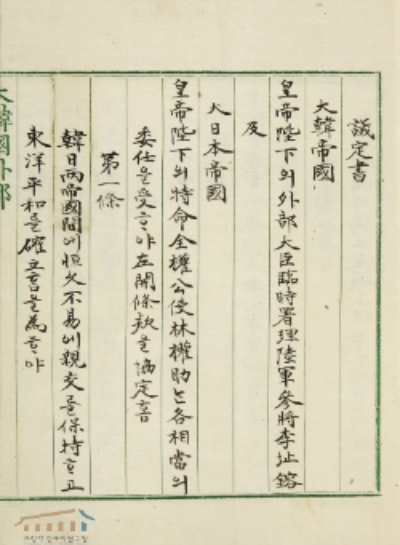 議定書
大韓帝國
皇帝陛下의外部大臣臨時署理陸軍參將李址鎔
及
大日本帝國
皇帝陛下의特命全權公使林權助는各相當의
委任을受ᄒᆞ야左開條款을協定홈
第一條
韓日兩帝國間에恒久不易에親交를保持ᄒᆞ고
東洋平和를確立홈을爲ᄒᆞ야
大韓國外部